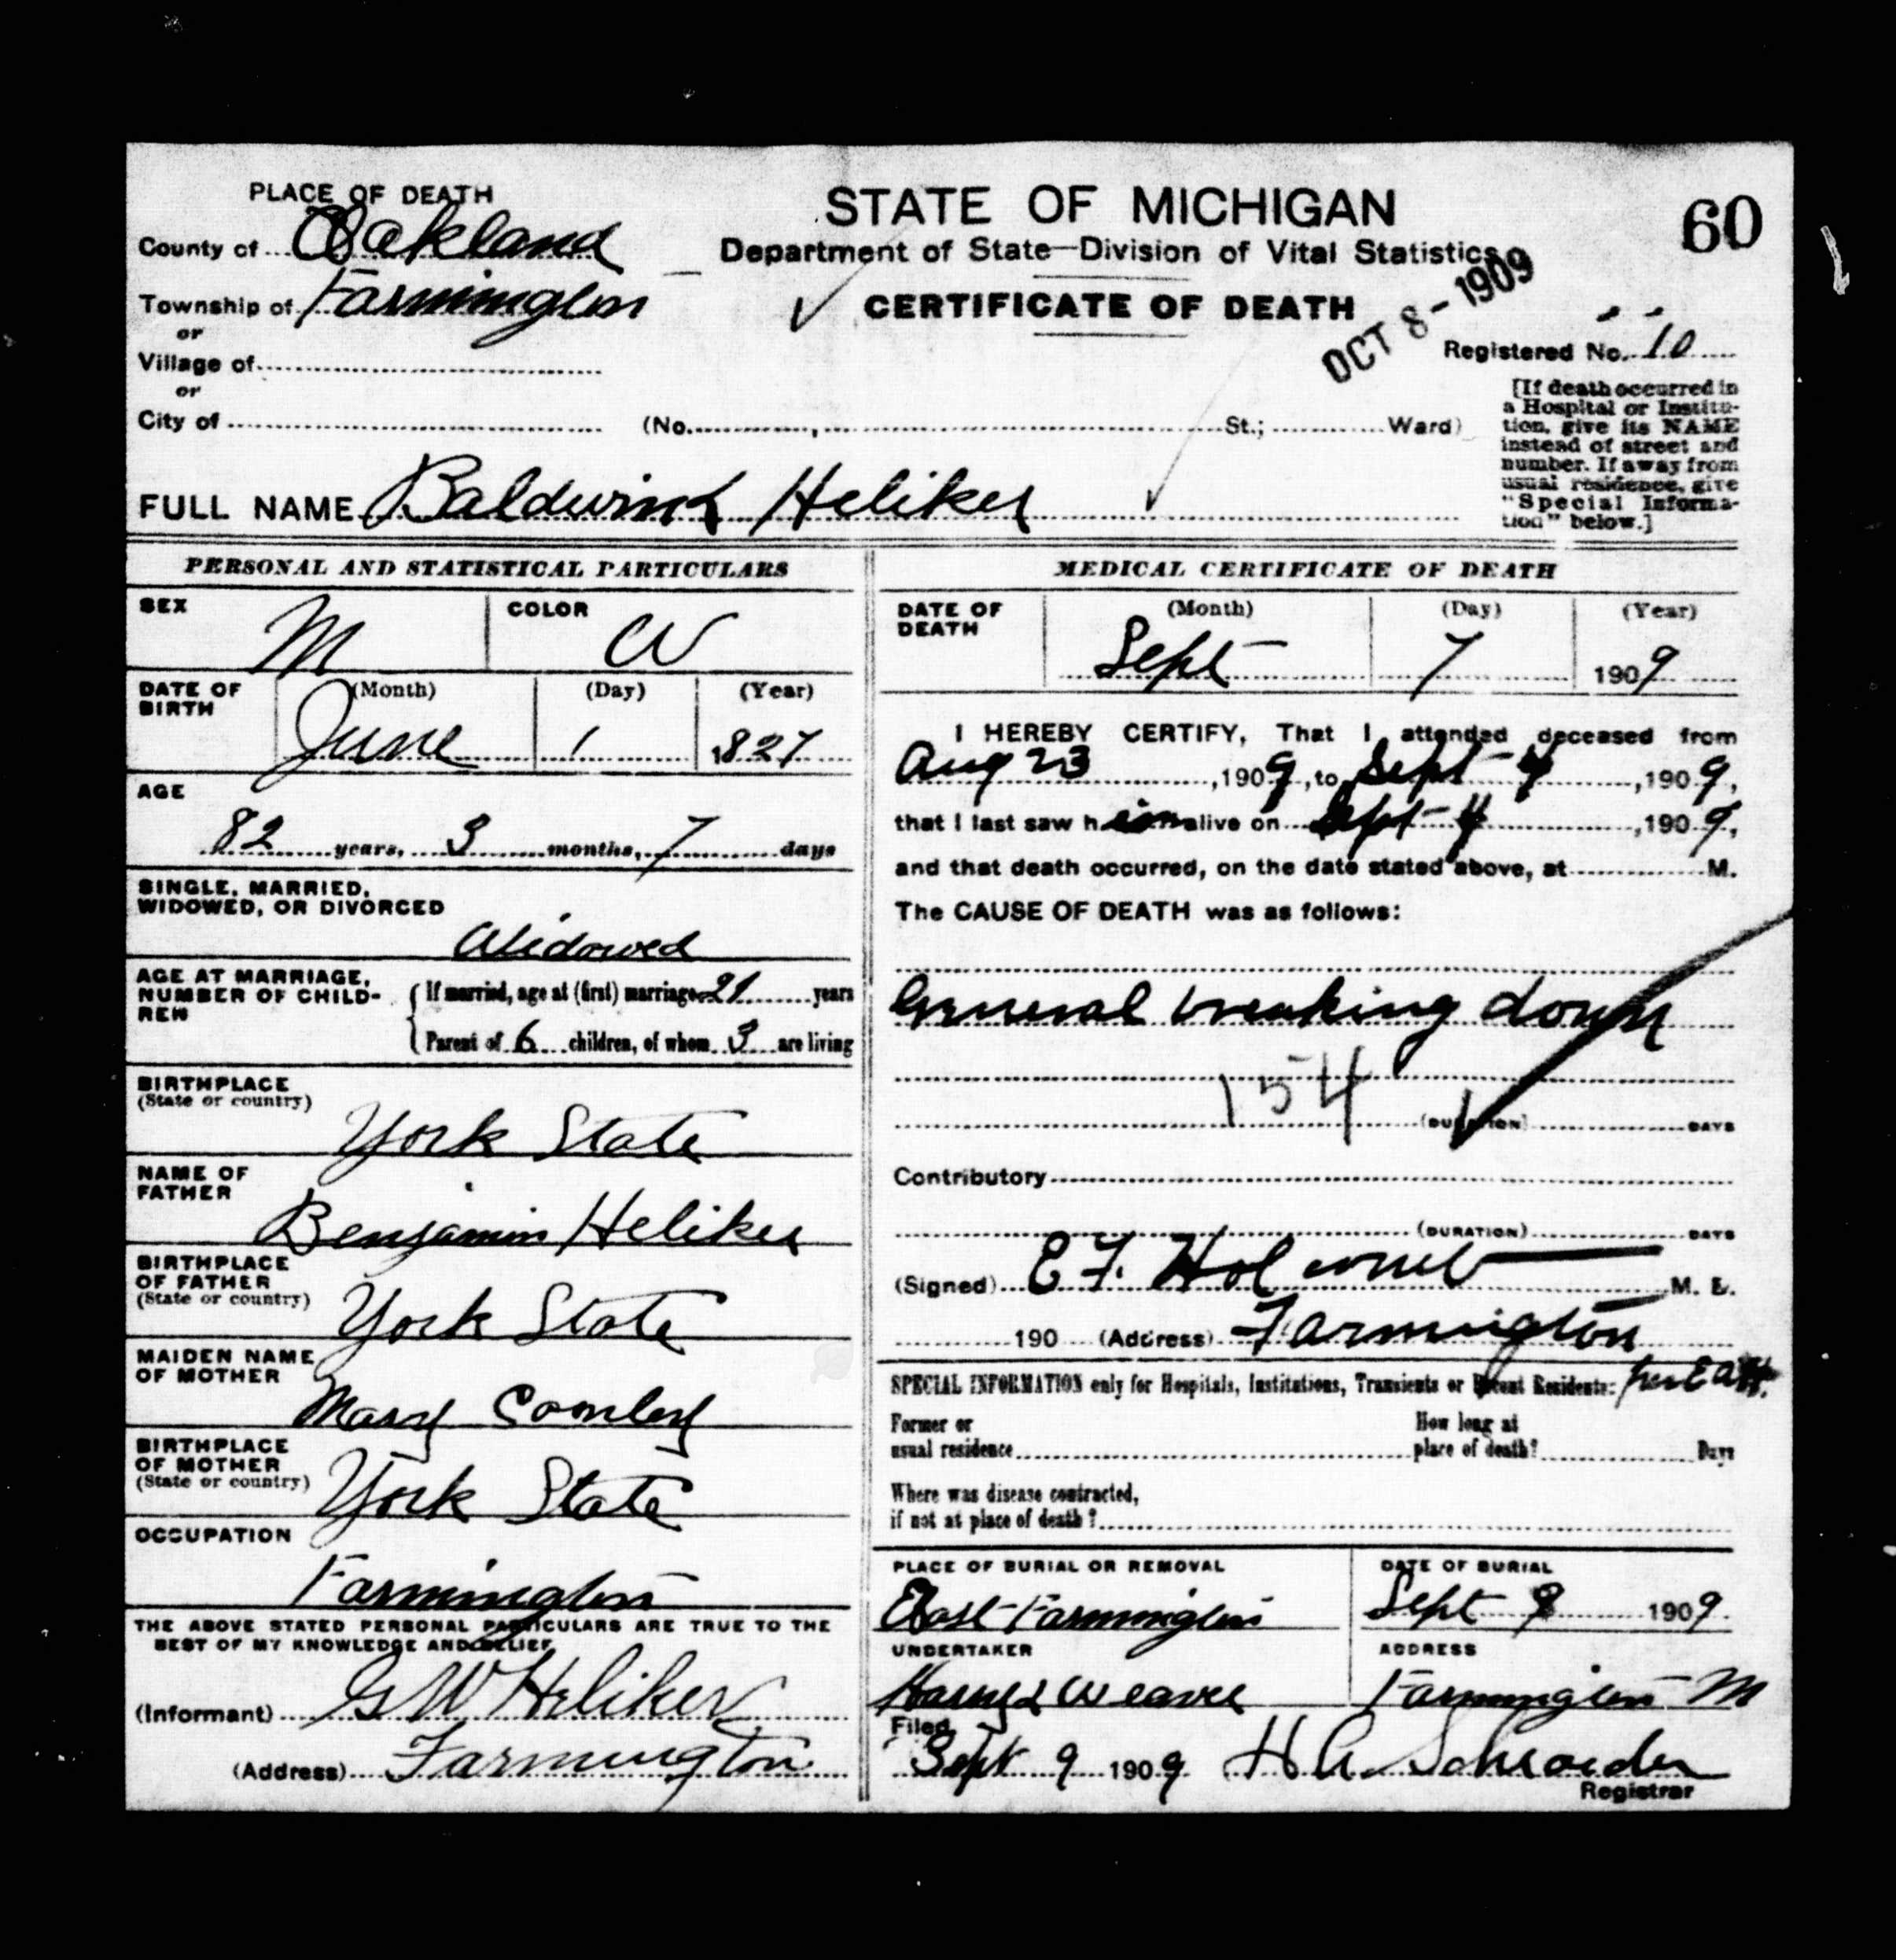 PLACE OF DEATH
County of Oakland
Township of Farmington
or
Village of
or
City of (No. , St.; Ward)
STATE OF MICHIGAN
Department of State—Division of Vital Statistics
CERTIFICATE OF DEATH
OCT 8 - 1909
60
Registered No. 10
[If death occurred in
a Hospital or Institu-
tion, give its NAME
instead of street and
number. If away from
usual residence, give
"Special Informa-
tion" below.]
FULL NAME Baldwin Heliker
PERSONAL AND STATISTICAL PARTICULARS
SEX M COLOR W
DATE OF BIRTH (Month) (Day) (Year)
June 1 1827
AGE
82 years, 3 months, 7 days
SINGLE, MARRIED,
WIDOWED, OR DIVORCED
Widowed
AGE AT MARRIAGE,
NUMBER OF CHILD-
REN
If married, age at (first) marriage 21 years
Parent of 6 children, of whom 3 are living
BIRTHPLACE
(State or country)
York State
NAME OF
FATHER
Benjamin Heliker
BIRTHPLACE
OF FATHER
(State or country)
York State
MAIDEN NAME
OF MOTHER
Mary Comley
BIRTHPLACE
OF MOTHER
(State or country)
York State
OCCUPATION
Farmington
THE ABOVE STATED PERSONAL PARTICULARS ARE TRUE TO THE
BEST OF MY KNOWLEDGE AND BELIEF
(Informant) G W Heliker
(Address) Farmington
MEDICAL CERTIFICATE OF DEATH
DATE OF DEATH (Month) (Day) (Year)
Sept 7 1909
I HEREBY CERTIFY, That I attended deceased from
Aug 23, 1909, to Sept 4, 1909,
that I last saw him alive on Sept 4, 1909,
and that death occurred, on the date stated above, at M.
The CAUSE OF DEATH was as follows:
General breaking down
154
(DURATION) DAYS
Contributory
(DURATION) DAYS
(Signed) E F. Holcomb M. D.
190 (Address) Farmington
SPECIAL INFORMATION only for Hospitals, Institutions, Transients or Recent Residents:
Former or
usual residence
How long at
place of death? Days
Where was disease contracted,
if not at place of death?
PLACE OF BURIAL OR REMOVAL
East Farmington
DATE OF BURIAL
Sept 9 1909
UNDERTAKER
Weaver
ADDRESS
Farmington M
Filed
Sept 9 1909 H A. Schroeder
Registrar